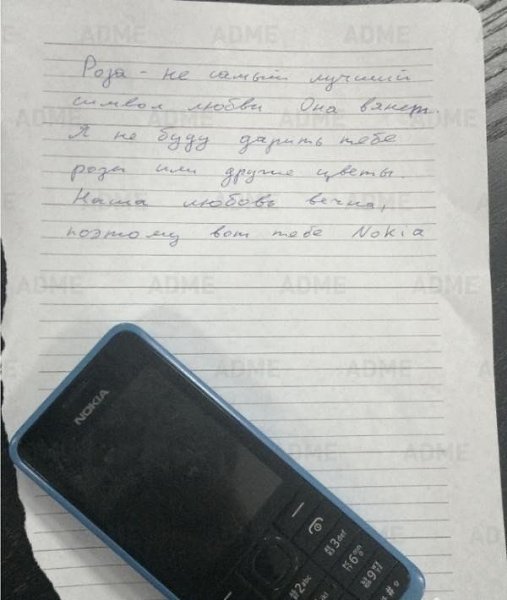 Роза - не самый лучший
символ любви Она вянет.
Я не буду дарить тебе
розы или другие цветы
Наша любовь вечна,
поэтому вот тебе Nokia
NOKIA
3 def
6
9
2 abc
#
ADME ADME ADME ADME
ADME ADME ADME
ADME ADME ADME ADME
ADME
ADME ADME